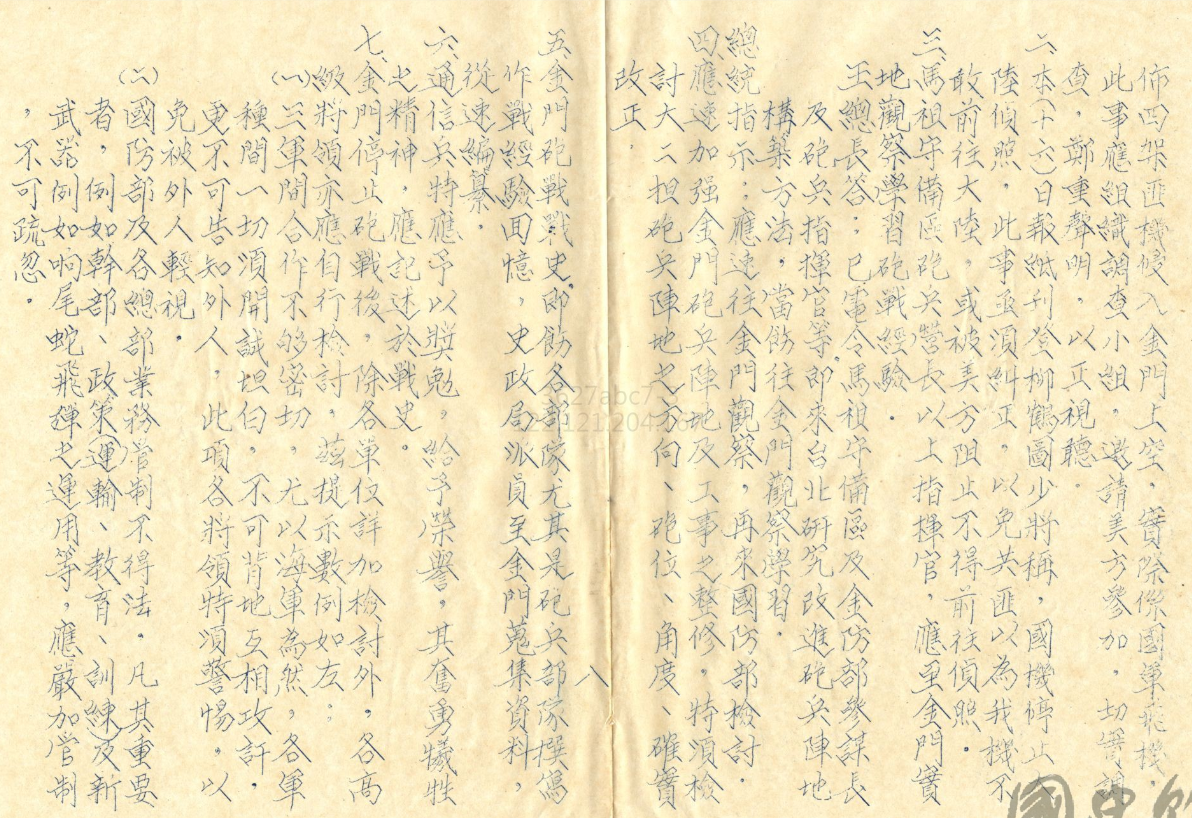 佈四架匪機竣入金門上空，實際係國軍飛機，
此事應組織調查小組，邀請美方參加，切實調
查，鄭重聲明，以正視聽。
二、本（十六）日報紙刊登柳鶴圖少將稱，國機停止大
陸偵照，此事亟須糾正，以免共匪以為我機不
敢前往大陸，或被美方阻止不得前往偵照。
三、馬祖守備區砲兵營長以上指揮官，應至金門實
地觀察學習砲戰經驗。
王總長答：已電令馬祖守備區及金防部參謀長
及砲兵指揮官等即來台北研究改進砲兵陣地
構築方法，當飭往金門觀察學習。
總統指示：應速往金門觀察，再來國防部檢討。
四、應速加强金門砲兵陣地及工事之整修，特須檢
討大二担砲兵陣地之方向、砲位、角度、確實
改正。
八
五、金門砲戰戰史，即飭各部隊尤其是砲兵部隊撰寫
作戰經驗回憶，史政局派員至金門蒐集資料，
從速編纂。
六、通信兵特應予以獎勉，給予榮譽，其奮勇犧牲
之精神，應記述於戰史。
七、金門停止砲戰後，除各單位詳加檢討外，各高
級將領亦應自行檢討，茲提示數例如左：
（一）三軍間合作不够密切，尤以海軍為然，各軍
種間一切須開誠坦白，不可背地互相攻訐，
更不可告知外人，此項各將領特須警惕，以
免被外人輕視。
（二）國防部及各總部業務管制不得法。凡其重要
者，例如幹部、政策（運輸、教育、訓練）及新
武器例如响尾蛇飛彈之運用等，應嚴加管制
，不可疏忽。